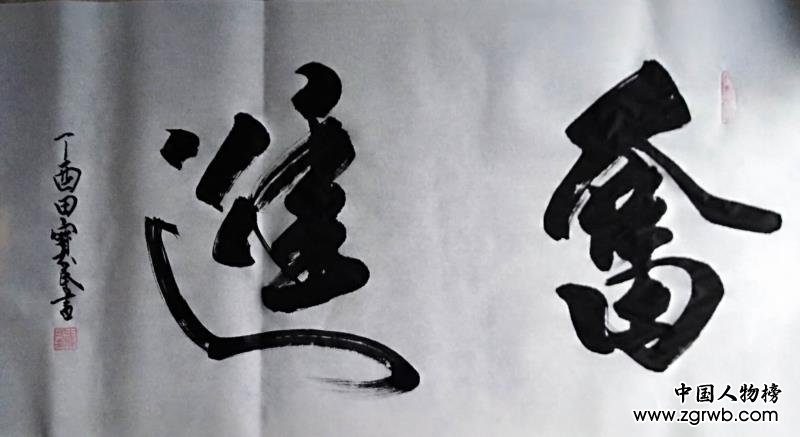 奮進
丁酉田寶民書
中国人物榜
www.zgrwb.com